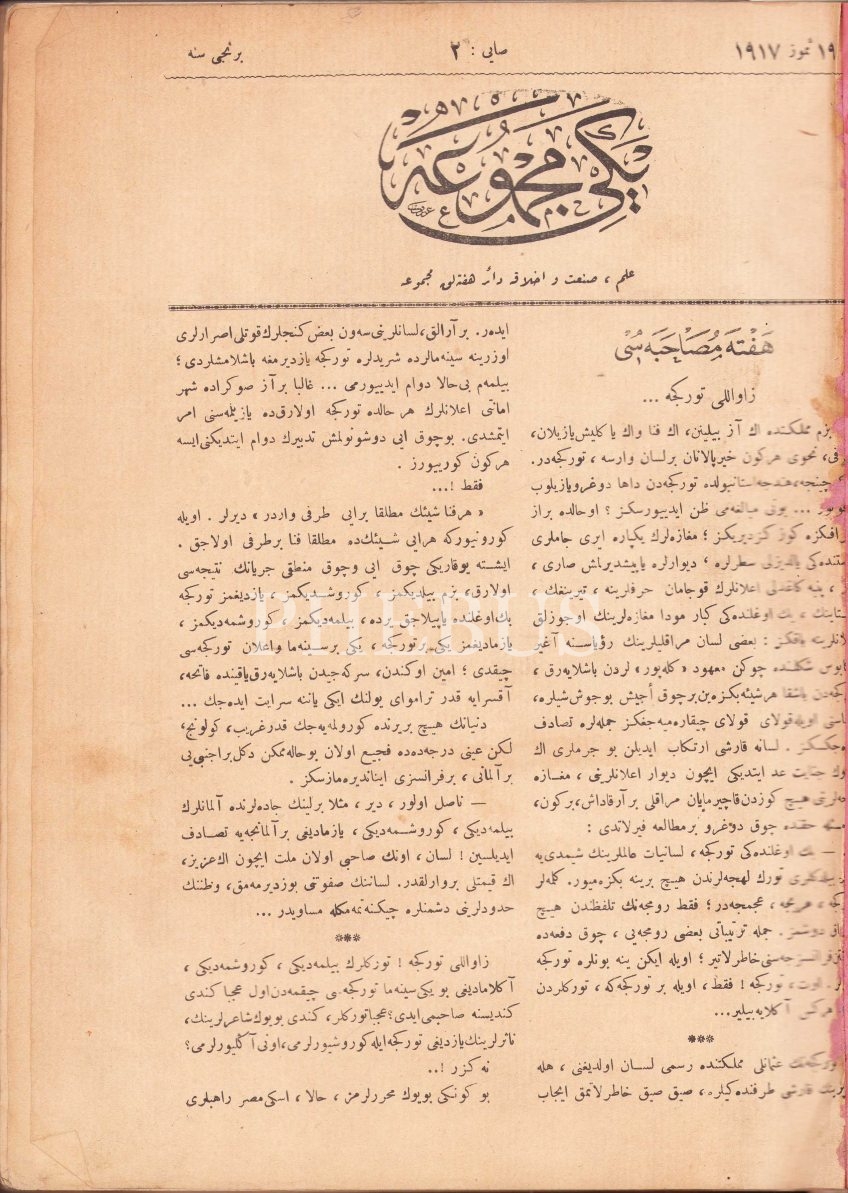 ١٩ تموز ١٩١٧
صایی : ٢
برنجی سنه
یکی مجموعه
علم ، صنعت و اخلاقه دائر هفته‌لق مجموعه
هفته مصاحبه‌سی
زاواللی تورکجه ...
بزم مملکتنده اك آز بیلینن، اك فنا واك یاکلیش یازیلان،
نحوی هرکون خیرپالانان برلسان وارسه ، تورکجه‌در.
استانبولده تورکجه‌دن داها دوغرو یازیلوب
... بونی مبالغه‌می ظن ایدییورسکز ؟ اوحالده براز
کوز کزدیریکز ؛ مغازه‌لرك یکپاره ایری جاملری
یالدیزلی سطرلره ، دیوارلره یاپیشدیرلمش صاری ،
پنبه کاغدلی اعلانلرك قوجامان حرفلرینه ، تیرینفك ،
بك اوغلنده‌کی کبار مودا مغازه‌لرینك اوجوزلق
باقکز : بعضی لسان مراقلیلرینك رؤیاسنه آغیر
شکلنده چوکن معهود « کله‌پور » لردن باشلایه‌رق ،
باشقا هرشیئه بکزه‌ین برچوق أجیش بوجوش شیلره ،
اویله قولای قولای چیقاره‌میه‌جغکز جمله‌لره تصادف
. لسانه قارشی ارتکاب ایدیلن بو جرملری اك
جنایت عد ایتدیکی ایچون دیوار اعلانلرینی ، مغازه
هیچ کوزدن قاچیرمایان مراقلی برآرقداش، برکون،
حقنده چوق دوغرو برمطالعه فیرلاتدی :
— بك اوغلنده‌کی تورکجه ، لسانیات عالملرینك شمدی‌یه
تورك لهجه‌لرندن هیچ برینه بکزه‌میور. کله‌لر
عجمجه‌در ؛ فقط رومجه‌نك تلفظندن هیچ
. جمله ترتیباتی بعضی رومجه‌یی ، چوق دفعه‌ده
فرانسزجه‌سنی خاطرلاتیر ؛ اویله ایکن ینه بونلره تورکجه
اوت ، تورکجه ! فقط ، اویله بر تورکجه‌که ، تورکلردن
هرکس آکلایه‌بیلیر...
***
تورکجه‌نك عثمانلی مملکتنده رسمی لسان اولدیغنی ، هله
قارشی طرفنده‌کیلره ، صیق صیق خاطرلاتمق ایجاب
ایده‌ر. برآرالق، لسانلرینی سه‌ون بعض کنجلرك قوتلی اصرارلری
اوزرینه سینه‌مالرده شریدلره تورکجه یازدیرمغه باشلامشلردی ؛
بیلمه‌م بی حالا دوام ایدییورمی ... غالبا برآز صوکراده شهر
اماتی اعلانلرك هر حالده تورکجه اولارق‌ده یازیلمه‌سنی امر
ایتمشدی. بوچوق ایی دوشونولمش تدبیرك دوام ایتدیکنی ایسه
هرکون کورییورز .
فقط !...
« هرفنا شیئك مطلقا برایی طرفی واردر » دیرلر . اویله
کورونیورکه هرایی شیئك‌ده مطلقا فنا برطرفی اولاجق .
ایشته یوقاریکی چوق ایی وچوق منطقی جریانك نتیجه‌سی
اولارق، بزم بیلدیکمز ، کوروشدیکمز ، یازدیغمز تورکجه
بك‌اوغلنده یاپیلاجق یرده ، بیلمه‌دیکمز ، کوروشمه‌دیکمز ،
یازمادیغمز یکی برتورکجه ، یکی برسینه‌ما واعلان تورکجه‌سی
چیقدی ؛ امین اوکندن، سرکه‌جیدن باشلایه‌رق یاقینده فاتحه،
آقسرایه قدر تراموای یولنك ایکی یاننه سرایت ایده‌جك ...
دنیانك هیچ بریرنده کورولمه‌یه‌جك قدر غریب، کولونج،
لکن عینی درجه‌ده‌ده فجیع اولان بوحاله ممکن دکل براجنبی‌یی
برآلمانی ، برفرانسزی ایناندیره‌مازسکز .
— ناصل اولور ، دیر ، مثلا برلینك جاده‌لرنده آلمانلرك
بیلمه‌دیکی ، کوروشمه‌دیکی ، یازمادیغی برآلمانجه‌یه تصادف
ایدیلسین ! لسان ، اونك صاحبی اولان ملت ایچون اك عزیز،
اك قیمتلی بروارلقدر. لساننك صفوتنی بوزدیرمه‌مق، وطننك
حدودلرینی دشمنلره چیکنه‌تمه‌مکله مساویدر ...
***
زاواللی تورکجه ! تورکلرك بیلمه‌دیکی ، کوروشمه‌دیکی ،
آکلامادیغی بو یکی سینه‌ما تورکجه‌سی چیقمه‌دن اول عجبا کندی
کندیسنه صاحبمی ایدی؟ عجبا تورکلر، کندی بویوك شاعرلرینك،
ناثرلرینك یازدیغی تورکجه ایله کوروشیورلرمی، اونی آکلیورلرمی؟
نه کزر !..
بو کونکی بویوك محررلرمز ، حالا ، اسکی مصر راهبلری
PHEBUS